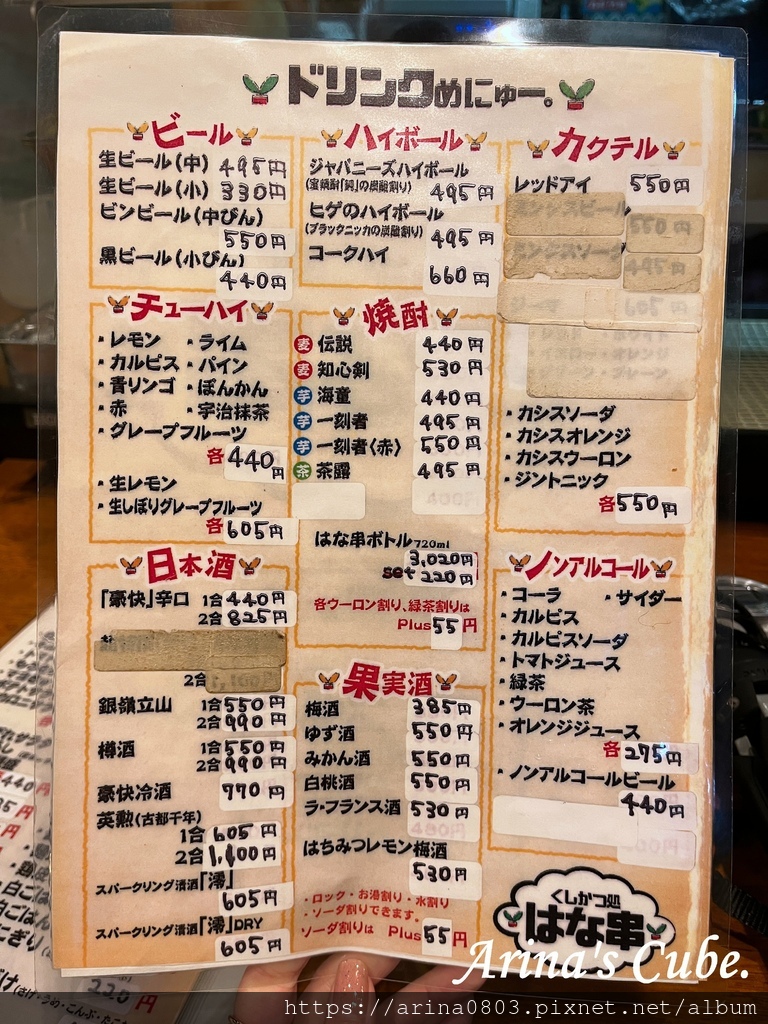 ドリンクめにゅー。
ビール
生ビール(中) 495円
生ビール(小) 330円
ビンビール(中びん)
550円
黒ビール(小びん)
440円
ハイボール
ジャパニーズハイボール
(宝焼酎「純」の炭酸割り) 495円
ヒゲのハイボール
(ブラックニッカの炭酸割り) 495円
コークハイ
660円
カクテル
レッドアイ 550円
・カシスソーダ
・カシスオレンジ
・カシスウーロン
・ジントニック
各550円
チューハイ
・レモン ・ライム
・カルピス ・パイン
・青リンゴ ・ぽんかん
・赤 ・宇治抹茶
・グレープフルーツ
各440円
・生レモン
・生しぼりグレープフルーツ
各605円
焼酎
麦 伝説 440円
麦 知心剣 530円
芋 海童 440円
芋 一刻者 495円
芋 一刻者〈赤〉 550円
茶 茶露 495円
はな串ボトル720ml
3,020円
set 220円
各ウーロン割り、緑茶割りは
Plus55円
日本酒
「豪快」辛口 1合440円
2合825円
2合
銀嶺立山 1合550円
2合990円
樽酒 1合550円
2合990円
豪快冷酒 770円
英勲(古都千年)
1合605円
2合1,100円
スパークリング清酒「澪」
605円
スパークリング清酒「澪」DRY
605円
果実酒
梅酒 385円
ゆず酒 550円
みかん酒 550円
白桃酒 550円
ラ・フランス酒 530円
はちみつレモン梅酒
530円
・ロック・お湯割り・水割り
・ソーダ割りできます。
ソーダ割りは Plus55円
ノンアルコール
・コーラ ・サイダー
・カルピス
・カルピスソーダ
・トマトジュース
・緑茶
・ウーロン茶
・オレンジジュース
各275円
・ノンアルコールビール
440円
くしかつ処
はな串
220円
Arina's Cube.
https://arina0803.pixnet.net/album